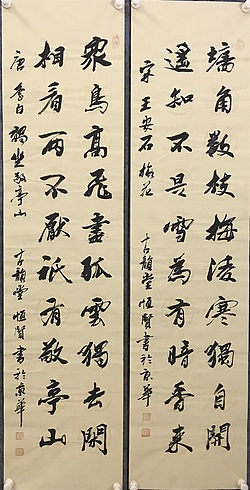 墻角數枝梅淩寒獨自開
遙知不是雪為有暗香來
宋 王安石 梅花 古韻堂 恒賢書於京華
眾鳥高飛盡孤雲獨去閑
相看兩不厭祇有敬亭山
唐 李白 獨坐敬亭山 古韻堂 恒賢書於京華